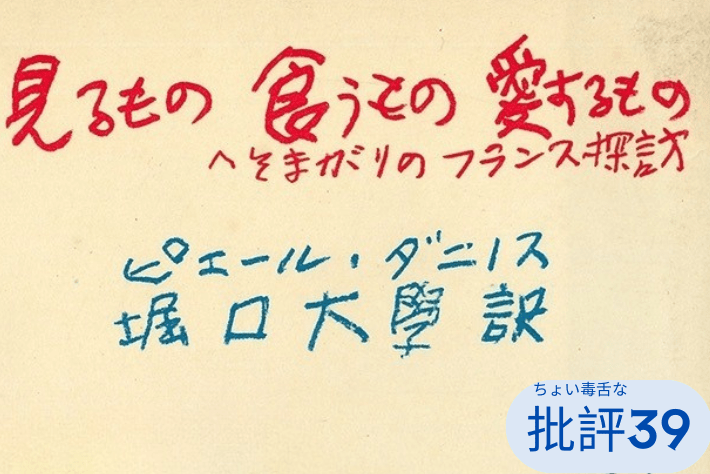 見るもの 食うもの 愛するもの
へそまがりのフランス探訪
ピエール・ダニノス
堀口大學訳
ちょい毒舌な
批評39